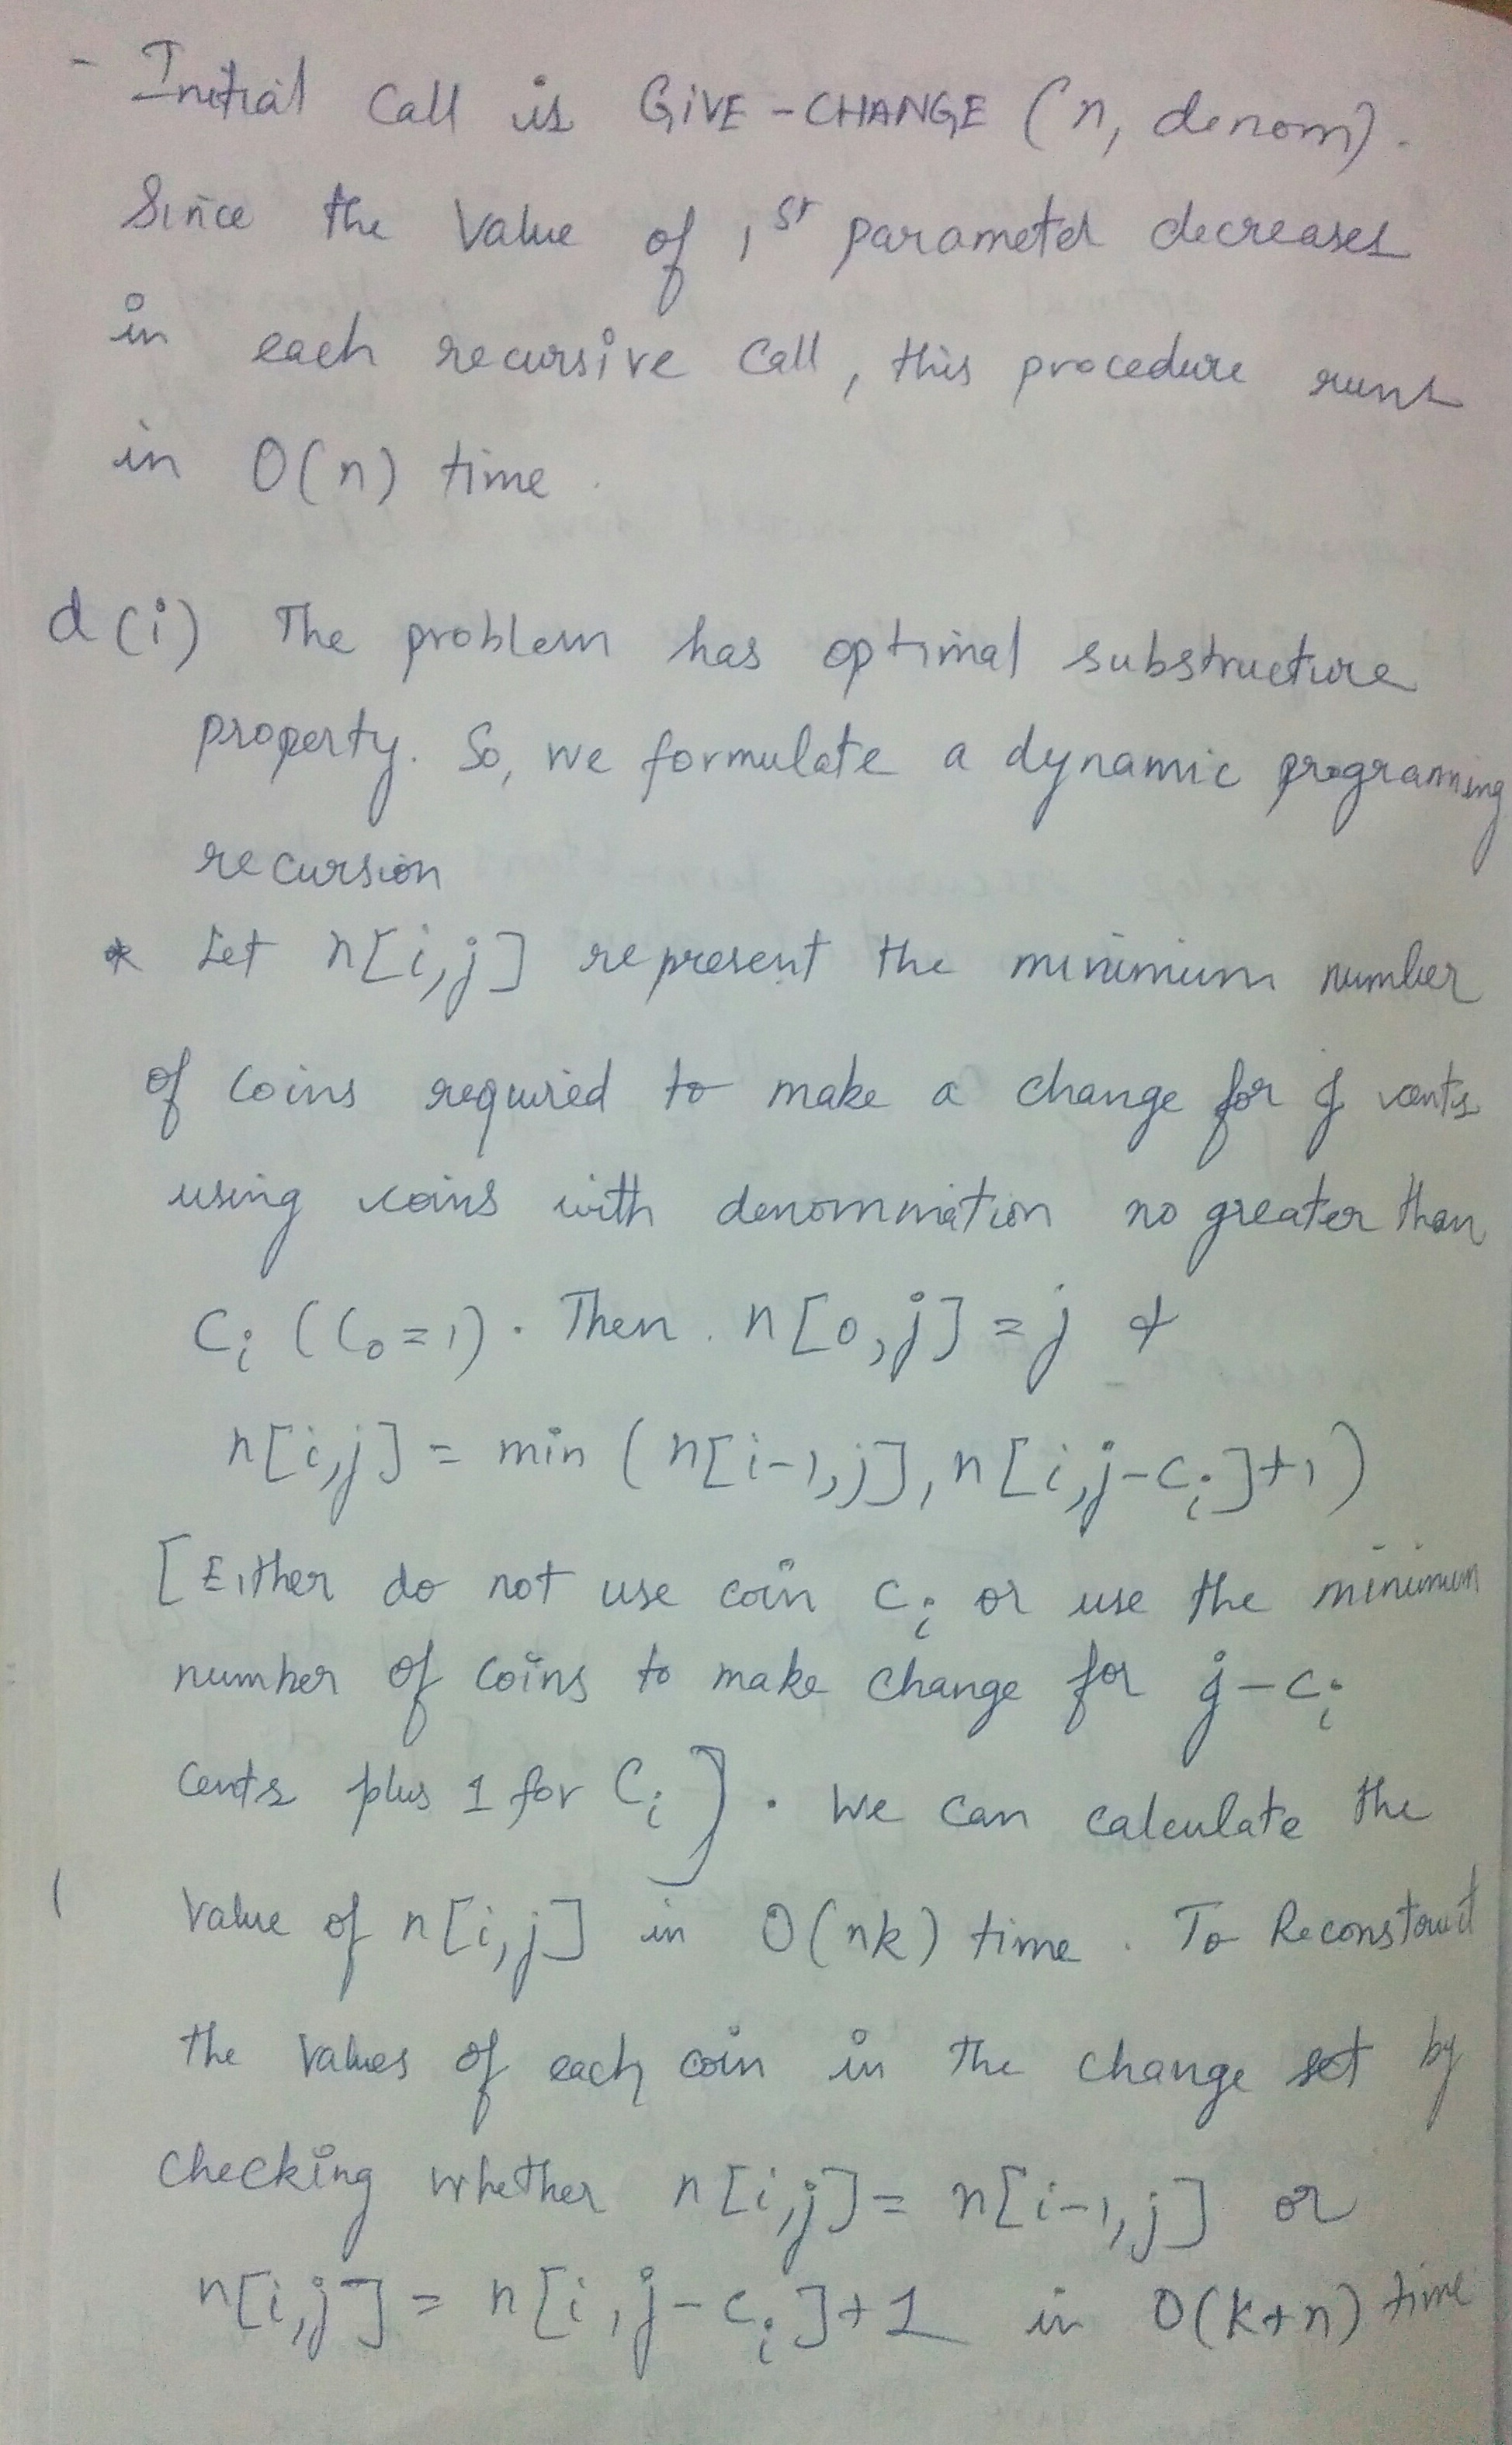 - Initial Call is GIVE-CHANGE (n, denom).
Since the Value of 1st parameter decreases
in each recursive Call, this procedure runs
in O(n) time.
d(i) The problem has optimal substructure
property. So, we formulate a dynamic programing
recursion
* Let n[i,j] represent the minimum number
of coins required to make a change for j cents
using coins with denomination no greater than
Ci (C0=1). Then. n[0,j]=j &
n[i,j] = min (n[i-1,j], n[i,j-Ci]+1)
[Either do not use coin Ci or use the minimum
number of coins to make change for j-Ci
cents plus 1 for Ci]. We can calculate the
value of n[i,j] in O(nk) time. To Reconstruct
the values of each coin in the change set by
checking whether n[i,j] = n[i-1,j] or
n[i,j] = n[i,j-Ci]+1 in O(k+n) time